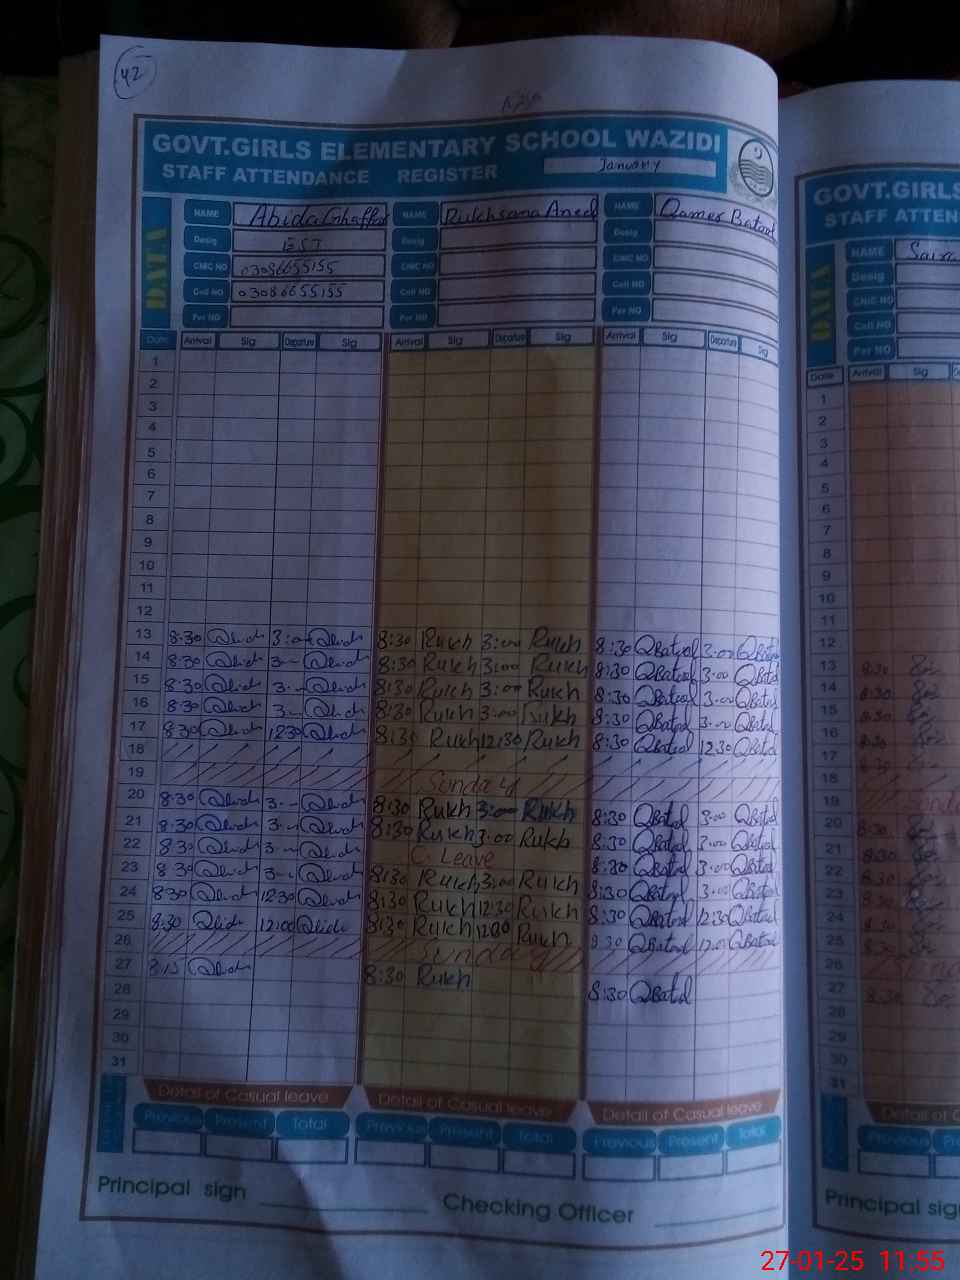 42
GOVT.GIRLS ELEMENTARY SCHOOL WAZIDI
STAFF ATTENDANCE REGISTER January
DATA
NAME Abida Ghaffar NAME Rukhsana NAME Qamer Batool
Desig EST Desig Desig
CNIC NO 03086655155 CNIC NO CNIC NO
Cell NO 03086655155 Cell NO Cell NO
Per NO Per NO Per NO
Date Arrival Sig Departure Sig Arrival Sig Departure Sig Arrival Sig Departure Sig
1
2
3
4
5
6
7
8
9
10
11
12
13 8:30 Abida 3:00 Abida 8:30 Rukh 3:00 Rukh 8:30 QBatool 3:00 QBatool
14 8:30 Abida 3:- Abida 8:30 Rukh 3:00 Rukh 8:30 QBatool 3:00 QBatool
15 8:30 Abida 3:- Abida 8:30 Rukh 3:00 Rukh 8:30 QBatool 3:00 QBatool
16 8:30 Abida 3:- Abida 8:30 Rukh 3:00 Rukh 8:30 QBatool 3:00 QBatool
17 8:30 Abida 12:30 Abida 8:30 Rukh 12:30 Rukh 8:30 QBatool 12:30 QBatool
18
19 Sunday
20 8:30 Abida 3:- Abida 8:30 Rukh 3:00 Rukh 8:30 QBatool 3:00 QBatool
21 8:30 Abida 3:- Abida 8:30 Rukh 3:00 Rukh 8:30 QBatool 3:00 QBatool
22 8:30 Abida 3:- Abida C. Leave 8:30 QBatool 3:00 QBatool
23 8:30 Abida 3:- Abida 8:30 Rukh 3:00 Rukh 8:30 QBatool 3:00 QBatool
24 8:30 Abida 12:30 Abida 8:30 Rukh 12:30 Rukh 8:30 QBatool 12:30 QBatool
25 8:30 Abida 12:00 Abida 8:30 Rukh 12:00 Rukh 8:30 QBatool 12:00 QBatool
26 Sunday
27 8:15 Abida 8:30 Rukh 8:30 QBatool
28
29
30
31
Detail of Casual leave Detail of Casual leave Detail of Casual leave
Previous Present Total Previous Present Total Previous Present Total
Principal sign Checking Officer
GOVT.GIRLS
STAFF ATTEN
DATA
NAME Saira
Desig
CNIC NO
Cell NO
Per NO
Date Arrival Sig
1
2
3
4
5
6
7
8
9
10
11
12
13 8:30
14 8:30
15 8:30
16 8:30
17 8:30
18
19
20 8:30
21 8:30
22 8:30
23 8:30
24 8:30
25 8:30
26
27 8:30
28
29
30
31
Detail of C
Previous Pr
Principal sig
27-01-25 11:55